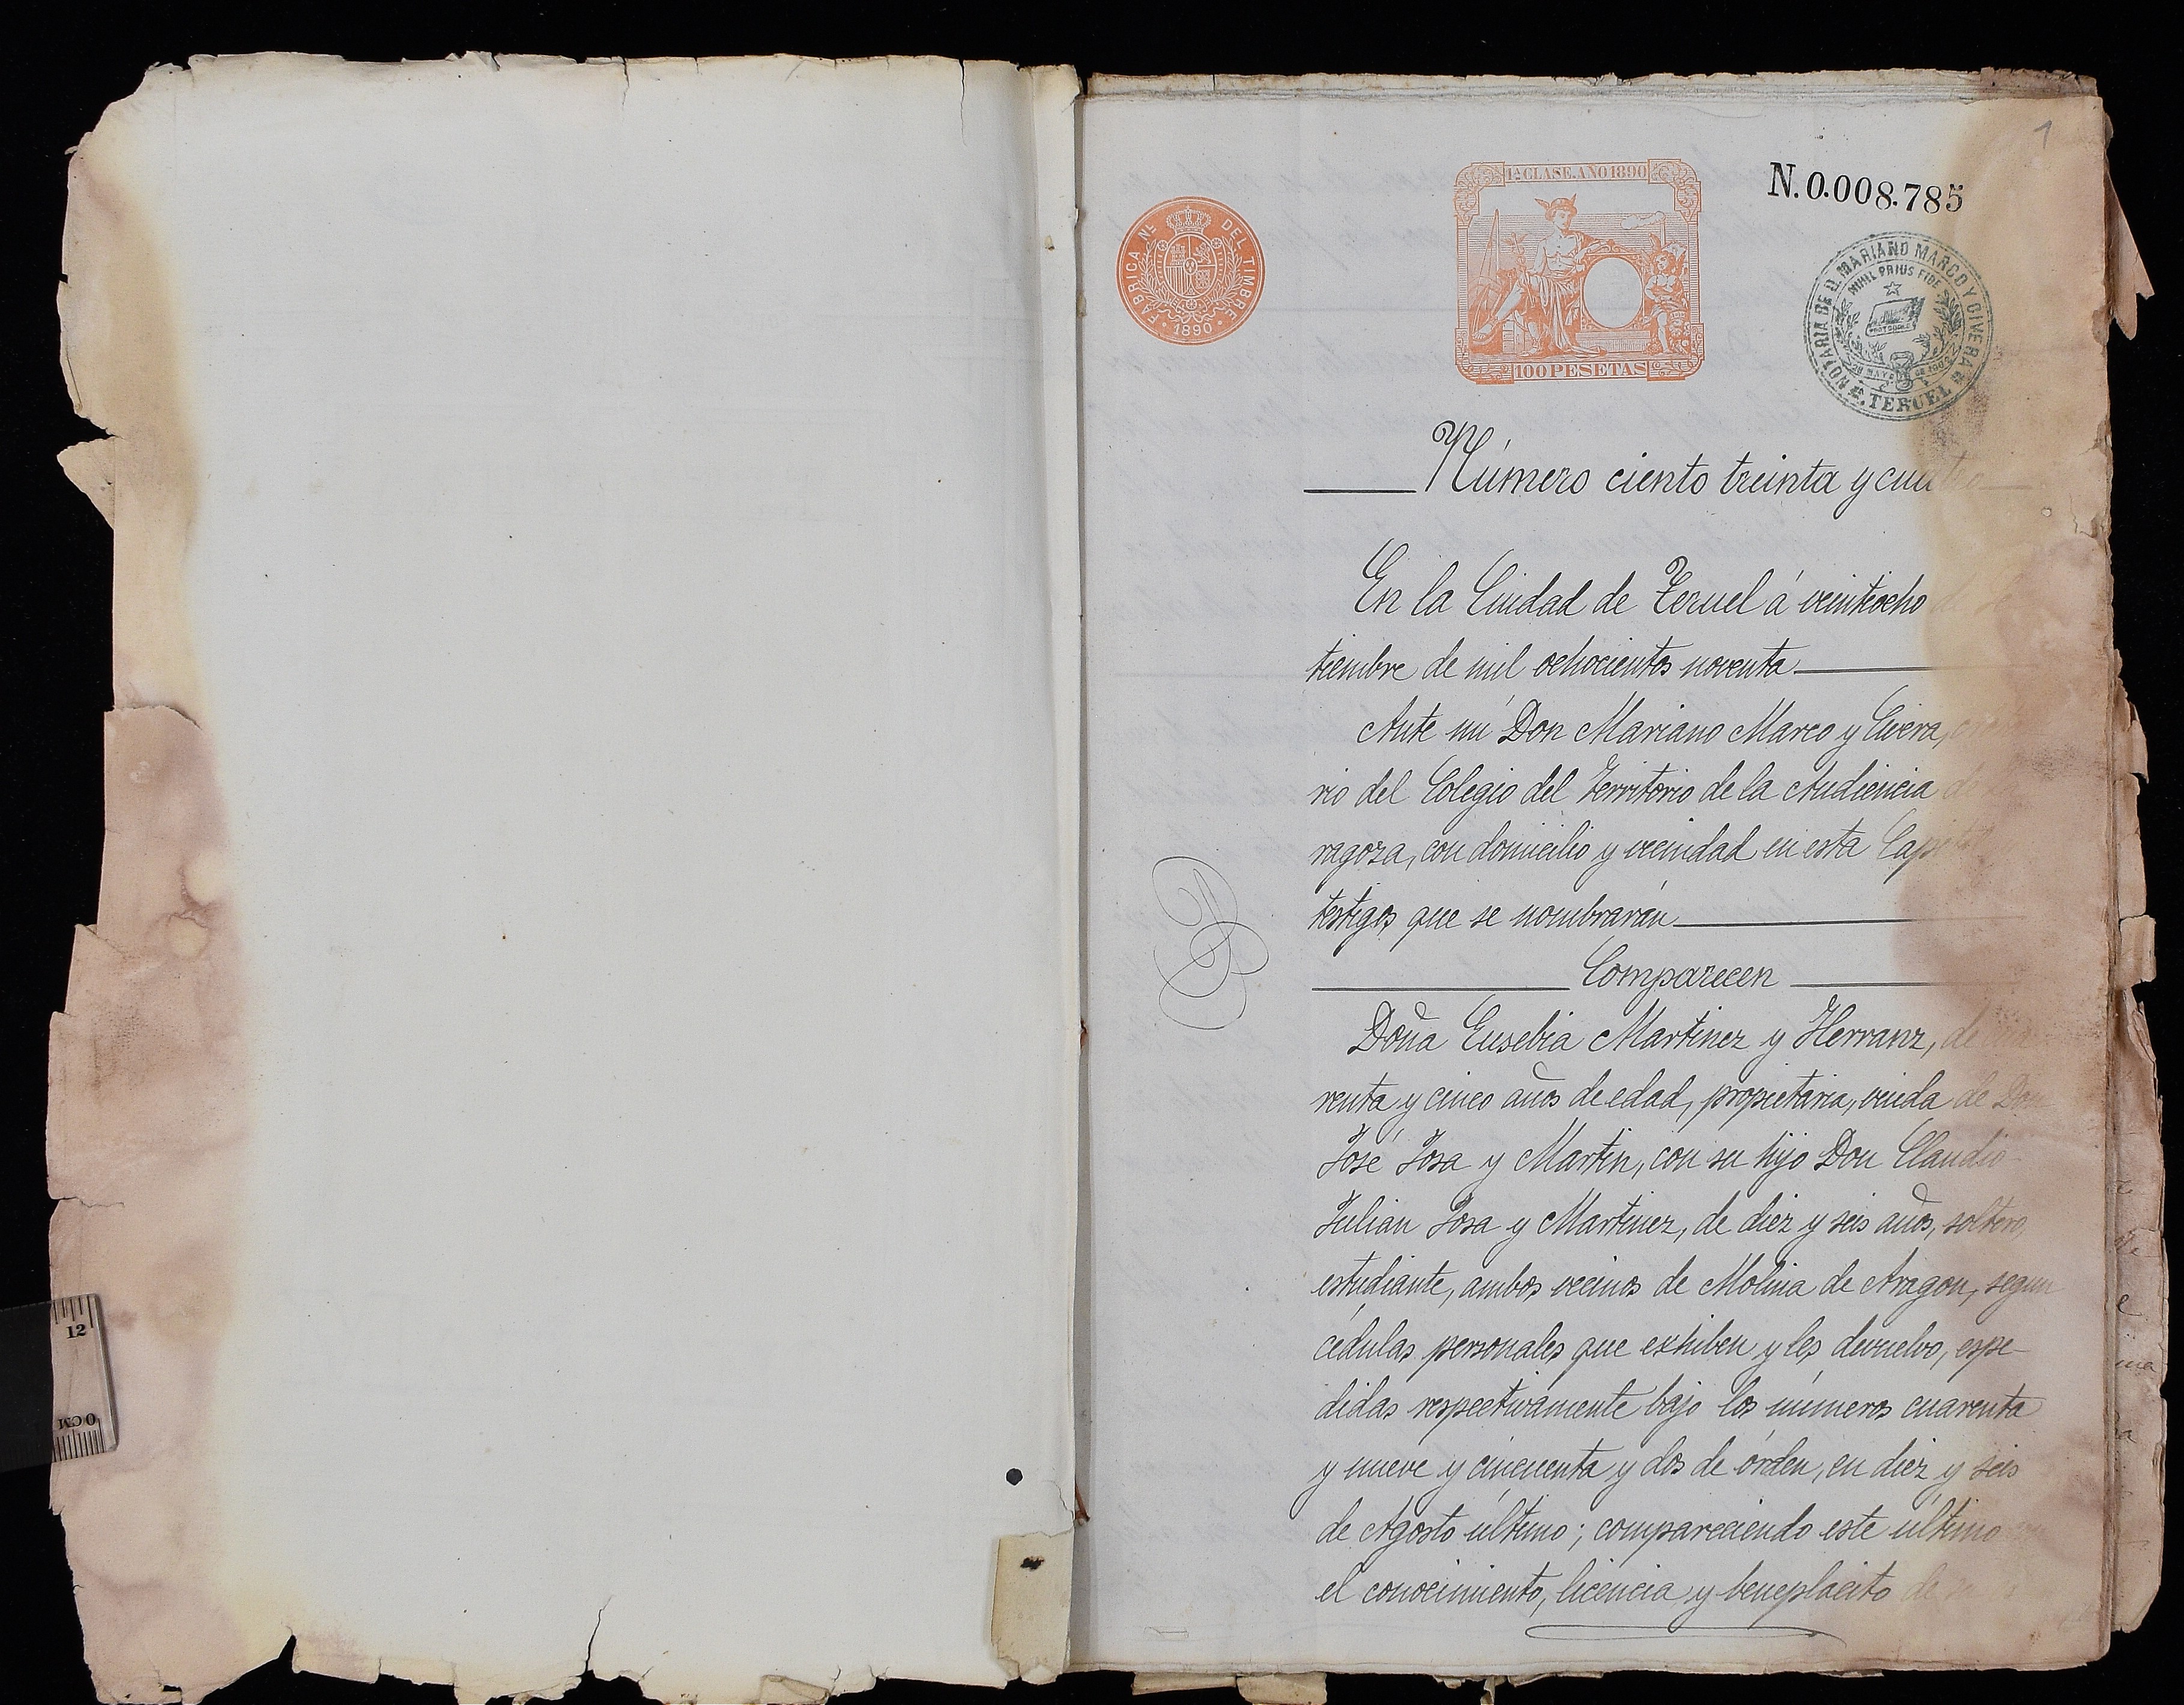 1
1ª CLASE. AÑO 1890
N.0.008.785
FABRICA Nᴸ DEL TIMBRE
1890
100 PESETAS
NOTARIA DE D. MARIANO MARCO Y CIVERA
NIHIL PRIUS FIDE
TERUEL
Número ciento treinta y cuatro
En la Ciudad de Teruel á veintiocho de Se
tiembre de mil ochocientos noventa
Ante mí Don Mariano Marco y Civera,
rio del Colegio del Territorio de la Audiencia de
ragoza, con domicilio y vecindad en esta Capital
testigos que se nombrarán
Comparecen
Doña Eusebia Martinez y Herranz, de cua
renta y cinco años de edad, propietaria, viuda de Don
José Josa y Martin, con su hijo Don Claudio
Julian Josa y Martinez, de diez y seis años, soltero,
estudiante, ambos vecinos de Molina de Aragon, segun
cédulas personales que exhiben y les devuelvo, espe-
didas respectivamente bajo los números cuarenta
y nueve y cincuenta y dos de órden, en diez y seis
de Agosto último; compareciendo este último
el conocimiento, licencia y beneplácito de
12
0 CM